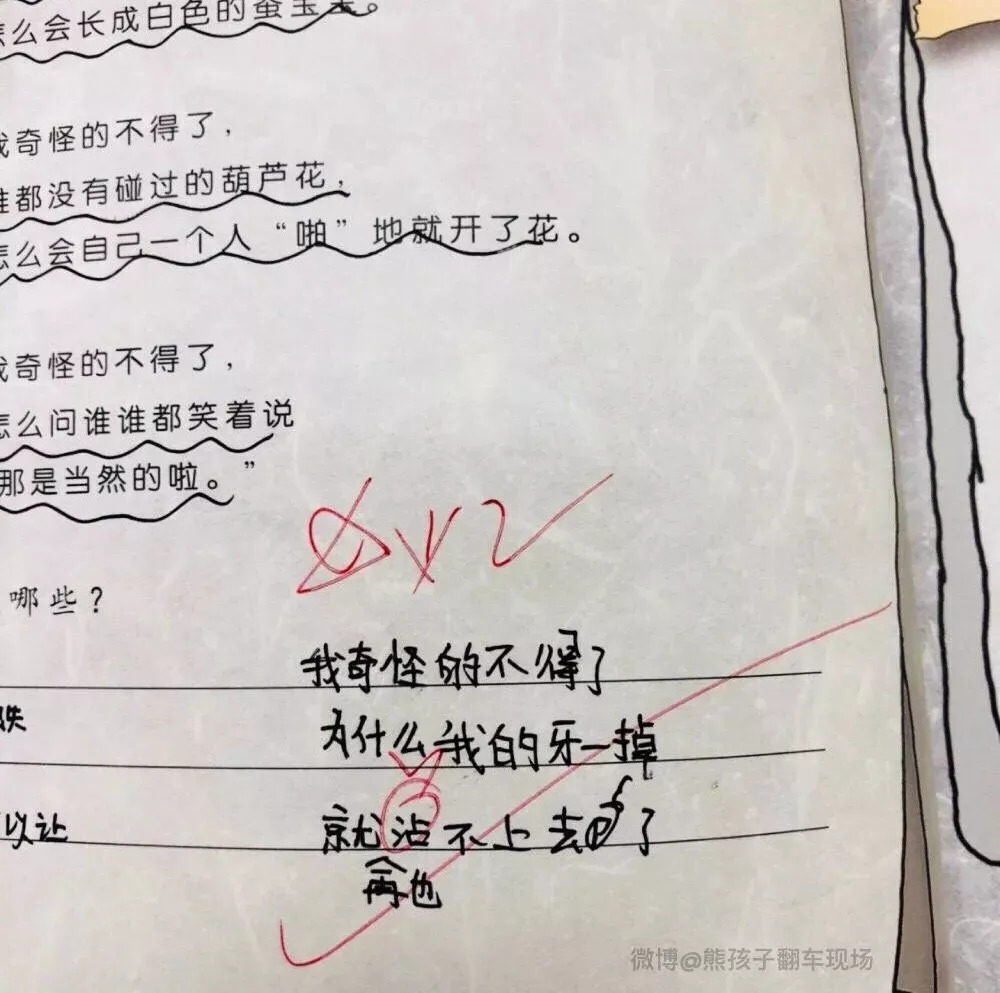 怎么会长成白色的蚕宝宝。
我奇怪的不得了，
谁都没有碰过的葫芦花，
怎么会自己一个人“啪”地就开了花。
我奇怪的不得了，
怎么问谁谁都笑着说
那是当然的啦。”
哪些？
我奇怪的不得了
为什么我的牙一掉
就沾不上去了
再也
以让
微博@熊孩子翻车现场